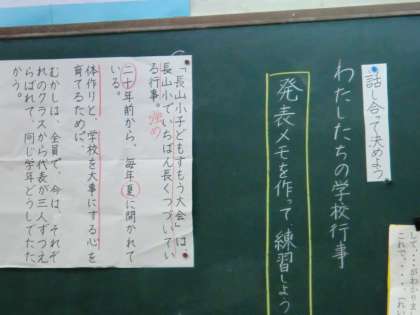 話し合って決めよう
わたしたちの学校行事
発表メモを作って練習しよう
「長山小子どもすもう大会」は、
長山小でいちばん長くつづいてい
る行事。強め
二十年前から、毎年夏に開かれて
いる。
体作りと、学校を大事にする心を
育てるために。
むかしは、全員で、今は、それぞ
れのクラスから代表が三人ずつえ
らばれて、同じ学年どうしでたた
かう。